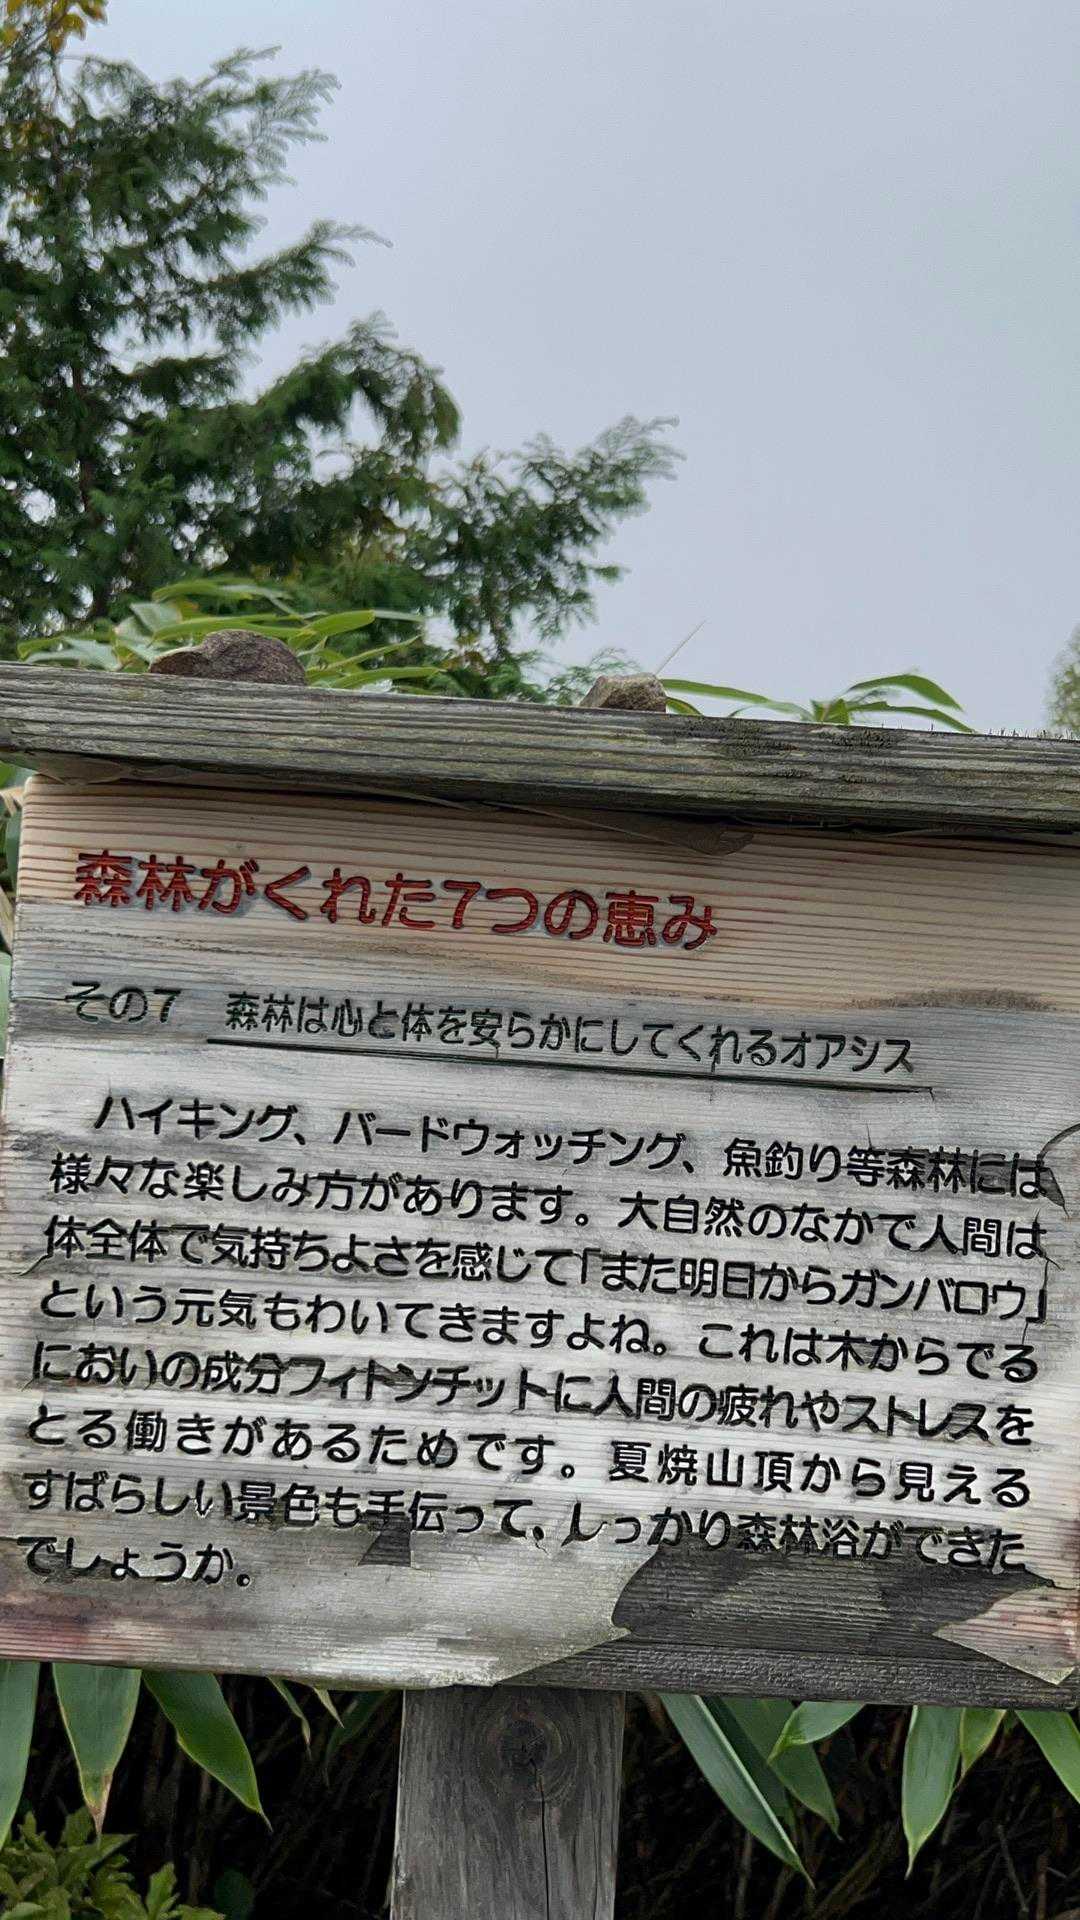 森林がくれた7つの恵み
その7　森林は心と体を安らかにしてくれるオアシス
ハイキング、バードウォッチング、魚釣り等森林には
様々な楽しみ方があります。大自然のなかで人間は
体全体で気持ちよさを感じて「また明日からガンバロウ」
という元気もわいてきますよね。これは木からでる
においの成分フィトンチットに人間の疲れやストレスを
とる働きがあるためです。夏焼山頂から見える
すばらしい景色も手伝って、しっかり森林浴ができた
でしょうか。